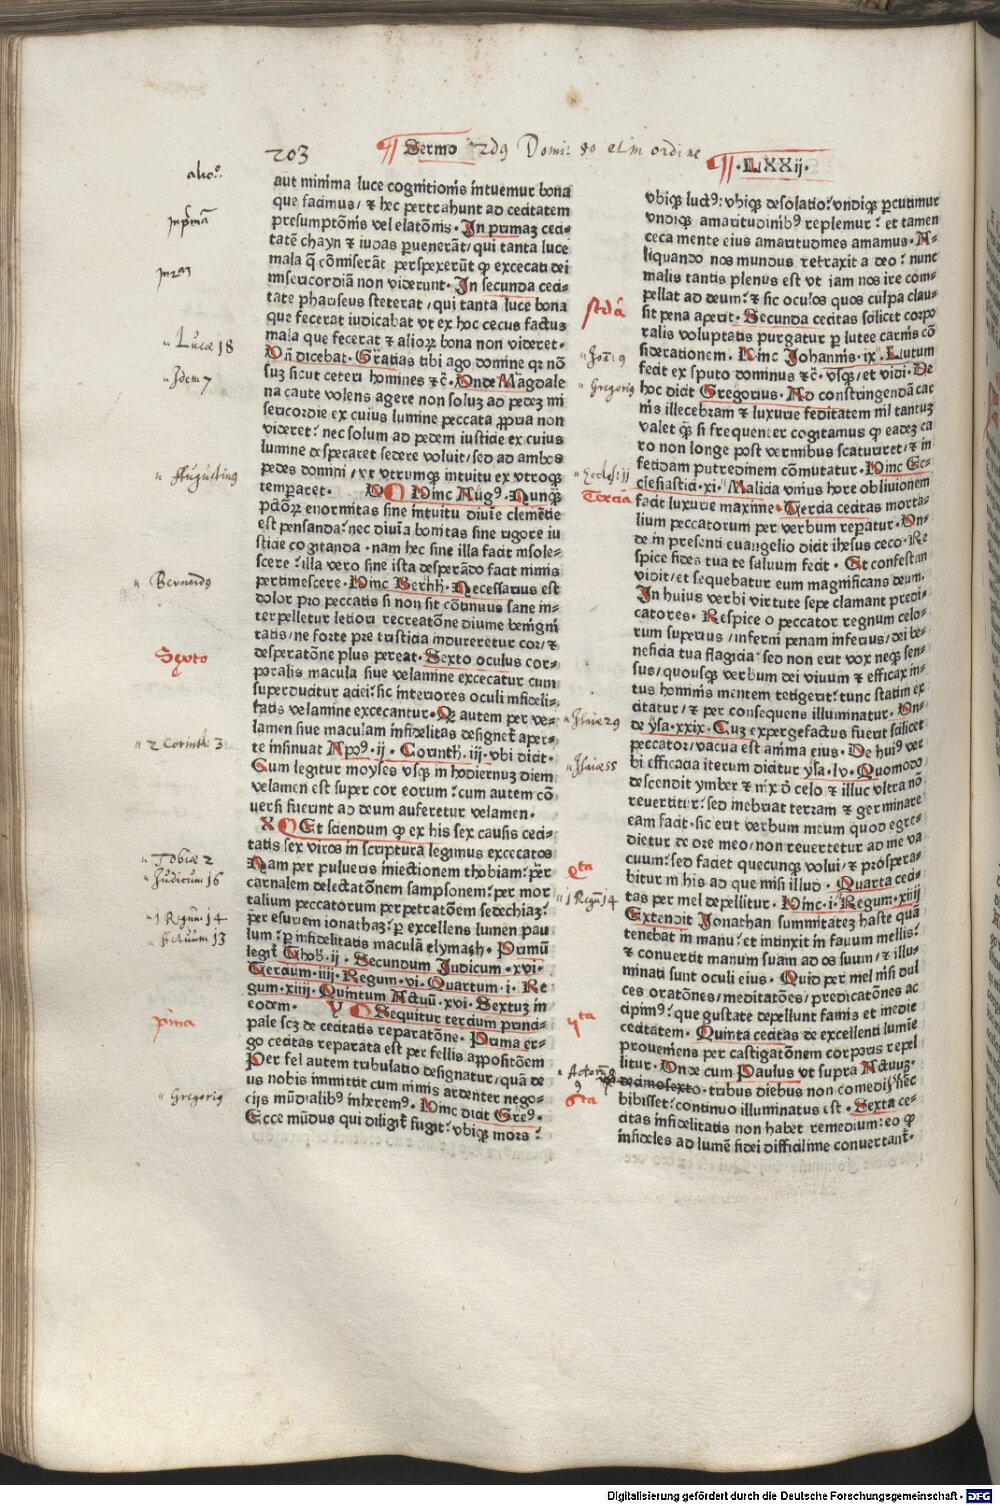 203
Sermo
·LXXij·
aut minima luce cognitionis intuemur bona
que facimus/ ⁊ hec pertrahunt ad cecitatem
presumptõnis vel elatõnis· In primaꝫ ceci-
tatē chayn ⁊ iudas ꝑuenerāt/ qui tanta luce
mala q̄ cõmiserāt perspexerūt ꝙ excecati dei
misericordiā non viderunt· In secunda ceci-
tate phariseus steterat/ qui tanta luce bona
que fecerat iudicabat vt ex hoc cecus factus
mala que fecerat ⁊ alioꝝ bona non videret·
Vñ dicebat· Gratias tibi ago domine qꝛ nō
suꝫ sicut ceteri homines ⁊c̄· Vnde Magdale
na caute volens agere non soluꝫ ad pedeꝫ mi
sericordie ex cuius lumine peccata ꝓpria non
videret: nec solum ad pedem iusticie ex cuius
lumine desperaret sedere voluit/ sed ad ambos
pedes domini/ vt vtrumqꝫ intuitu ex vtroqꝫ
temperaret· Hinc Augꝰ· Nunqꝫ̄
pctõꝝ enormitas sine intuitu diuīe clemētie
est pensanda: nec diuīa bonitas sine rigore iu
sticie cogitanda· nam hec sine illa facit insole-
scere: illa vero sine ista desperādo facit nimis
pertimescere· Hinc Bernh̄· Necessarius est
dolor pro peccatis si non sit cõtinuus sane in-
terpelletur letiori recreatõne diuine benigni
tatis/ ne forte pre tristicia induretur cor/ ⁊
desperatõne plus pereat· Sexto oculus cor-
poralis macula siue velamine excecatur cum
superducitur aciei: sic interiores oculi infideli-
tatis velamine excecantur· Qꝫ autem per ve-
lamen siue maculam infidelitas designet̄ aper-
te insinuat Apoꝰ· ij· Corinth̄· iij· vbi dicit·
Cum legitur moyses vsqꝫ in hodiernuꝫ diem
velamen est super cor eorum: cum autem cõ
uersi fuerint ad deum auferetur velamen·
X Et sciendum ꝙ ex his sex causis ceci-
tatis sex viros in scriptura legimus excecatos
Nam per pulueris iniectionem thobiam: ꝑer
carnalem delectatõnem sampsonem: per mor
talium peccatorum perpetratõem sedechiaꝫ:
per esuriem ionathaꝫ: ꝑ excellens lumen pau
lum: ꝑ infidelitatis maculā elymaꝫh· Primū
legit̄ Thob· ij· Secundum Judicum· xvi·
Tercium· iiij· Regum· vi· Quartum· i· Re
gum· xiiij· Quintum Actuū· xvi· Sextuꝫ in
eodem· Y Sequitur tercium princi-
pale scꝫ de cecitatis reparatõne· Prima er-
go cecitas reparata est per fellis apposîtõem
Per fel autem tribulatio designatur/ quā de
us nobis immittit cum nimis ardenter nego-
cijs mūdialibꝰ inheremꝰ· Hinc dicit Greꝰ·
Ecce mūdus qui diligit̄ fugit: vbiqꝫ mors:
vbiqꝫ luctꝰ: vbiqꝫ desolatio: vndiqꝫ ꝑcutimur
vndiqꝫ amaritudinibꝰ replemur: et tamen
ceca mente eius amaritudines amamus· A-
liquando nos mundus retraxit a deo: nunc
malis tantis plenus est vt iam nos ire com-
pellat ad deum: ⁊ sic oculos quos culpa clau-
sit pena aperit· Secunda cecitas scilicet corpo
ralis voluptatis purgatur ꝑ lutee carnis cõ
siderationem· Hinc Johannis· ix· Lutum
fecit ex sputo dominus ⁊c̄· vsqꝫ/ et vidi· De
hoc dicit Gregorius· Ad constringendā car
nis illecebram ⁊ luxurie feditatem nil tantuꝫ
valet qꝫ̄ si frequenter cogitamus ꝙ eadeꝫ ca
ro non longe post vermibus scaturiet/ ⁊ in
fetidam putredinem cõmutatur· Hinc Ec-
clesiastici· xi· Malicia vnius hore obliuionem
facit luxurie maxime· Tercia cecitas morta-
lium peccatorum per verbum reparatur· Vn-
de in presenti euangelio dicit ihesus ceco· Re
spice fides tua te saluum fecit· Et confestim
vidit/ et sequebatur eum magnificans deum·
In huius verbi virtute sepe clamant predi-
catores· Respice o peccator regnum celo-
rum superius/ inferni penam inferius/ dei be-
neficia tua flagicia: sed non erit vox neqꝫ sen-
sus/ quousqꝫ verbum dei viuum ⁊ efficax in-
tus hominis mentem tetigerit: tunc statim ex
citatur/ ⁊ per consequens illuminatur· Vn-
de ysa· xxix· Cuꝫ expergefactus fuerit scilicet
peccator/ vacua est anima eius· De huiꝰ ver
bi efficacia iterum dicitur ysa· lv· Quomodo
descendit ymber ⁊ nix d̄ celo ⁊ illuc vltra nō
reuertitur: sed inebriat terram ⁊ germinare
eam facit· sic erit verbum meum quod egre-
dietur de ore meo/ non reuertetur ad me va
cuum: sed faciet quecunqꝫ volui/ ⁊ prospera-
bitur in his ad que misi illud· Quarta ceci-
tas per mel depellitur· Hinc· i· Regum· xiiij
Extendit Jonathan summitateꝫ haste quā
tenebat in manu: et intinxit in fauum mellis:
⁊ conuertit manum suam ad os suum/ ⁊ illu-
minati sunt oculi eius· Quid per mel nisi dul
ces oratõnes/ meditatões/ predicatõnes ac
cipimꝰ: que gustate depellunt famis et inedie
cecitatem· Quinta cecitas de excellenti lumīe
proueniens per castigatõnem corporis repel
litur· Vnde cum Paulus vt supra Actuuꝫ·
decimosexto· tribus diebus non comedisset nec
bibisset: continuo illuminatus est· Sexta ce-
citas infidelitatis non habet remedium: eo ꝙ
infideles ad lumē fidei difficilime conuertant̄·
Lucæ 18
Idem 7
Augustinꝰ
Bernardꝰ
Sexto
2 Corinth 3
Tobiæ 2
Judicum 16
1 Regum· 14
Actuum 13
prima
Gregoriꝰ
Joā: 9
Gregoriꝰ
Eccles: ij
Tercia
Isaiæ 29
Isaiæ 55
4ta
1 Regū 14
5ta
6ta
Digitalisierung gefördert durch die Deutsche Forschungsgemeinschaft - DFG